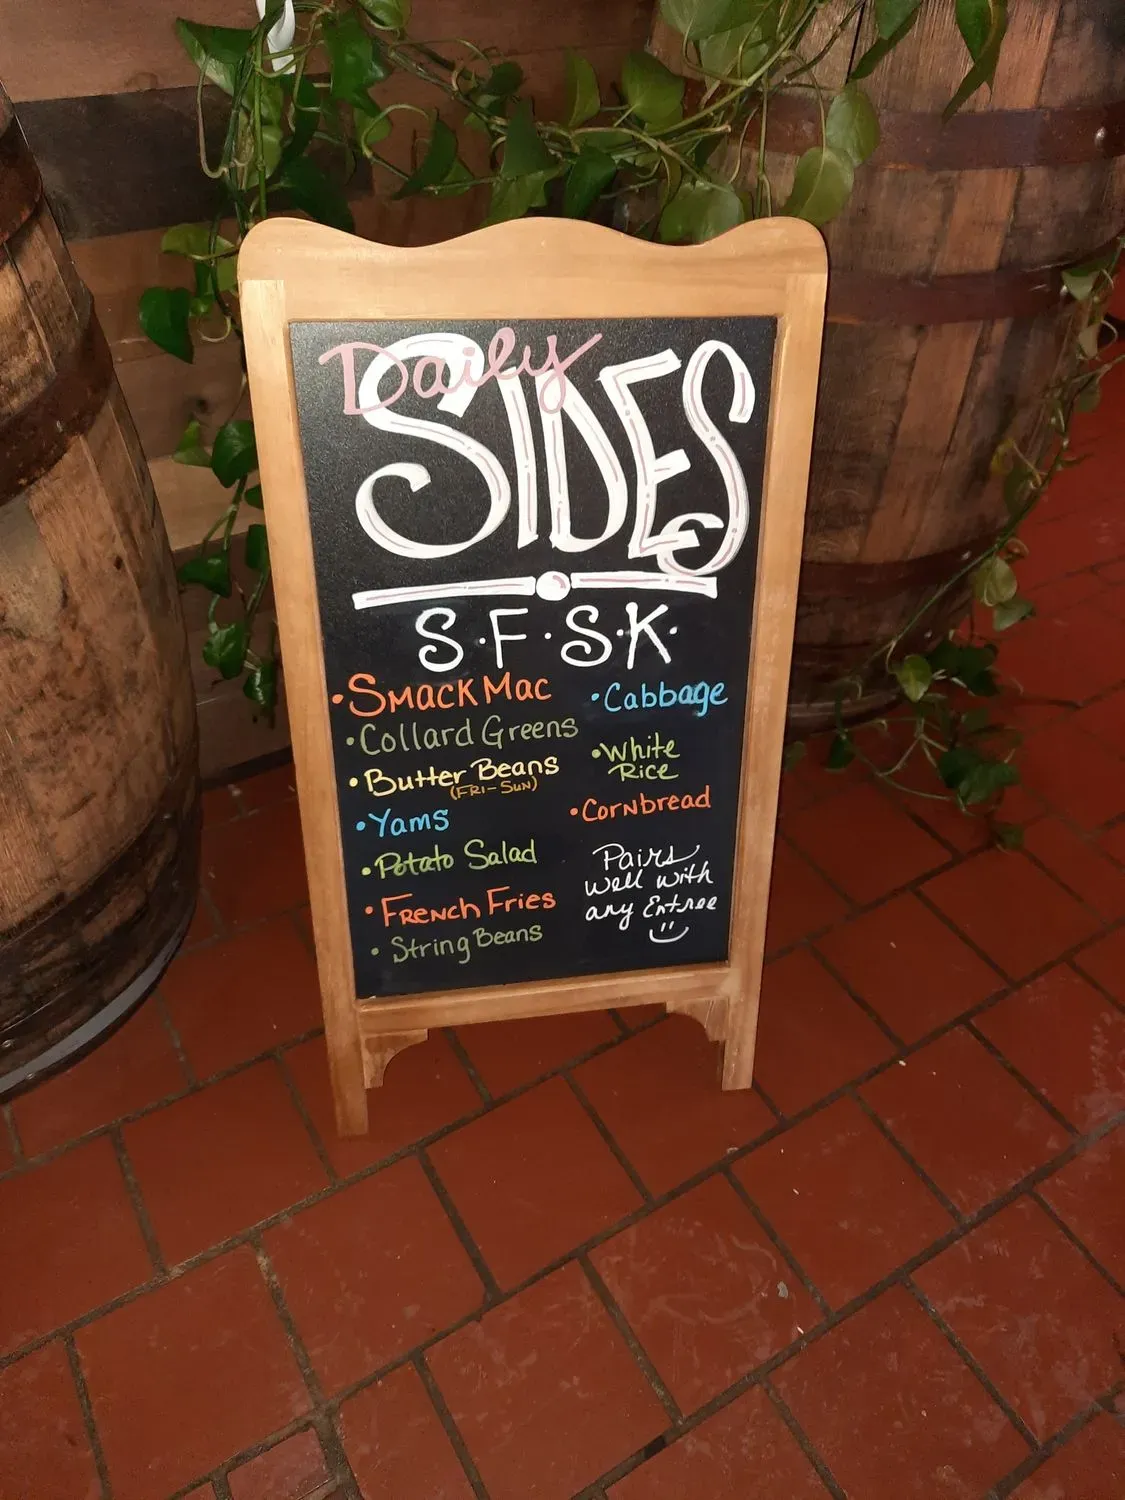 Daily
SIDES
S.F.S.K.
• Smack Mac
• Collard Greens
• Butter Beans
(Fri-Sun)
• Yams
• Potato Salad
• French Fries
• String Beans
• Cabbage
• White
Rice
• Cornbread
Pairs
well with
any Entree